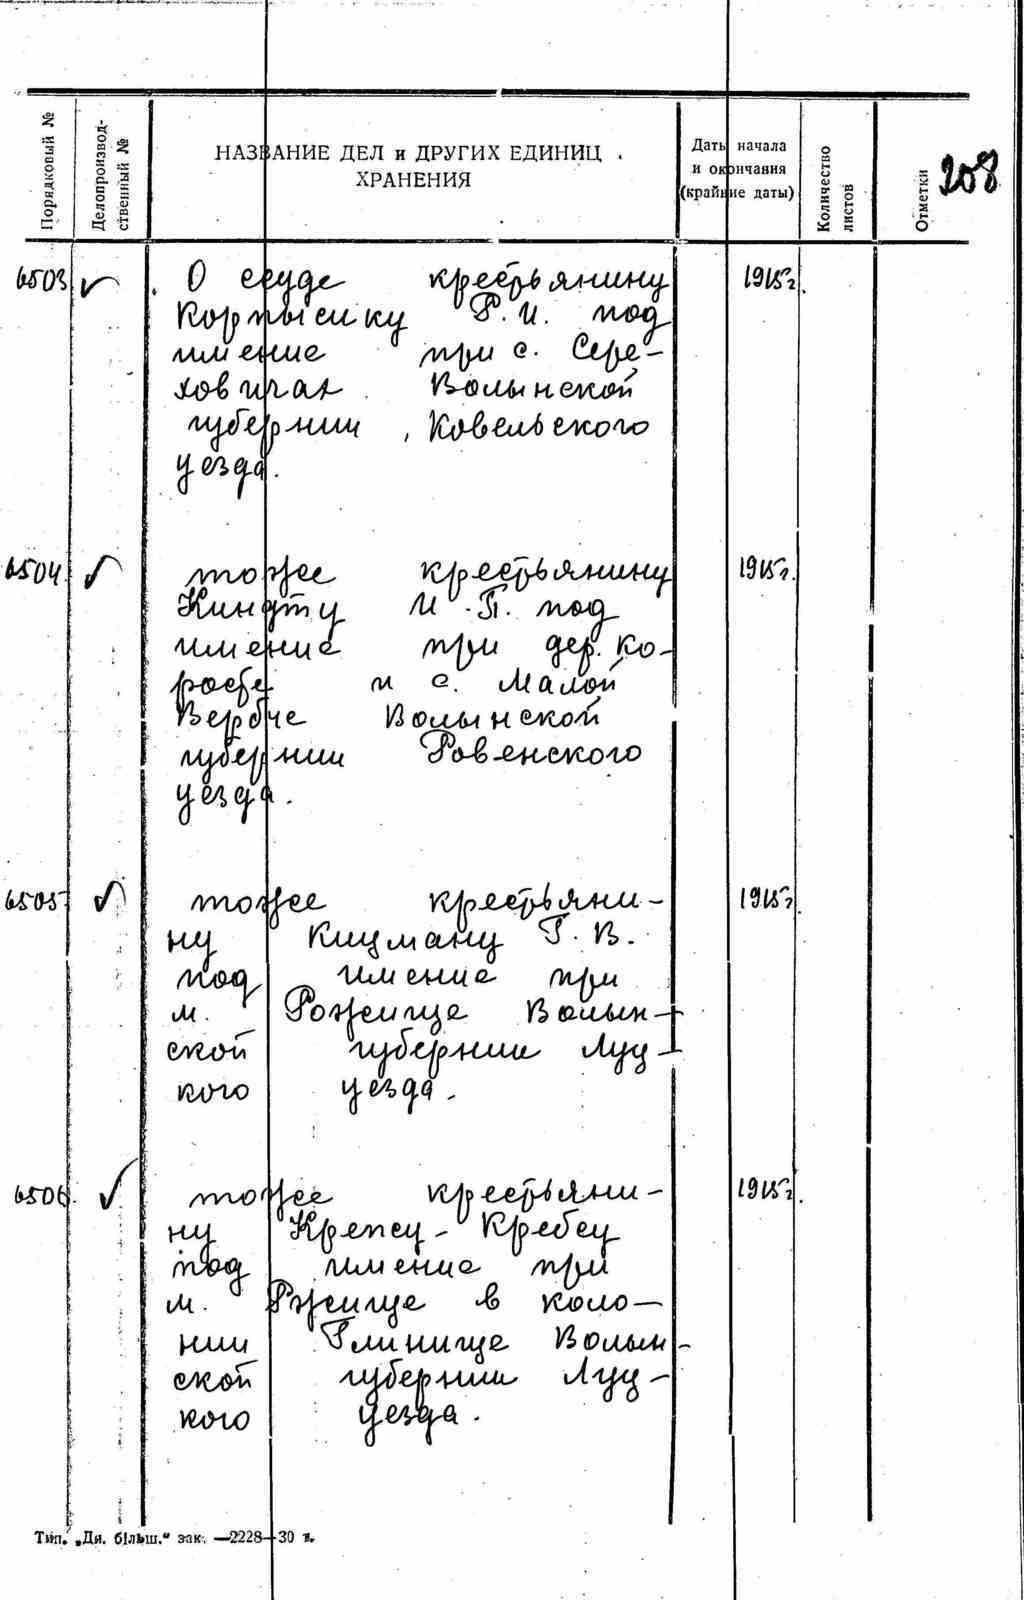 Порядковый №
Делопроизвод-
ственный №
НАЗВАНИЕ ДЕЛ и ДРУГИХ ЕДИНИЦ
ХРАНЕНИЯ
Даты начала
и окончания
(крайние даты)
Количество
листов
Отметки
208
6503 О ссуде крестьянину 1915г.
Корпысику Р.И. под
имение при с. Сере-
ховичах Волынской
губернии, Ковельского
уезда.
6504. тоже крестьянину 1915г.
Киндту И.П. под
имение при дер. Ко-
росте и с. Малой
Вербче Волынской
губернии Ровенского
уезда.
6505 тоже крестьяни- 1915г.
ну Кицману Г.В.
под имение при
м. Рожище Волын-
ской губернии Луц-
кого уезда.
6506. тоже крестьяни- 1915г.
ну - Кребсу
под имение при
м. Ржище в коло-
нии Глинище Волын-
ской губернии Луц-
кого уезда.
Тип. „Дн. більш." зак. —2228—30 г.